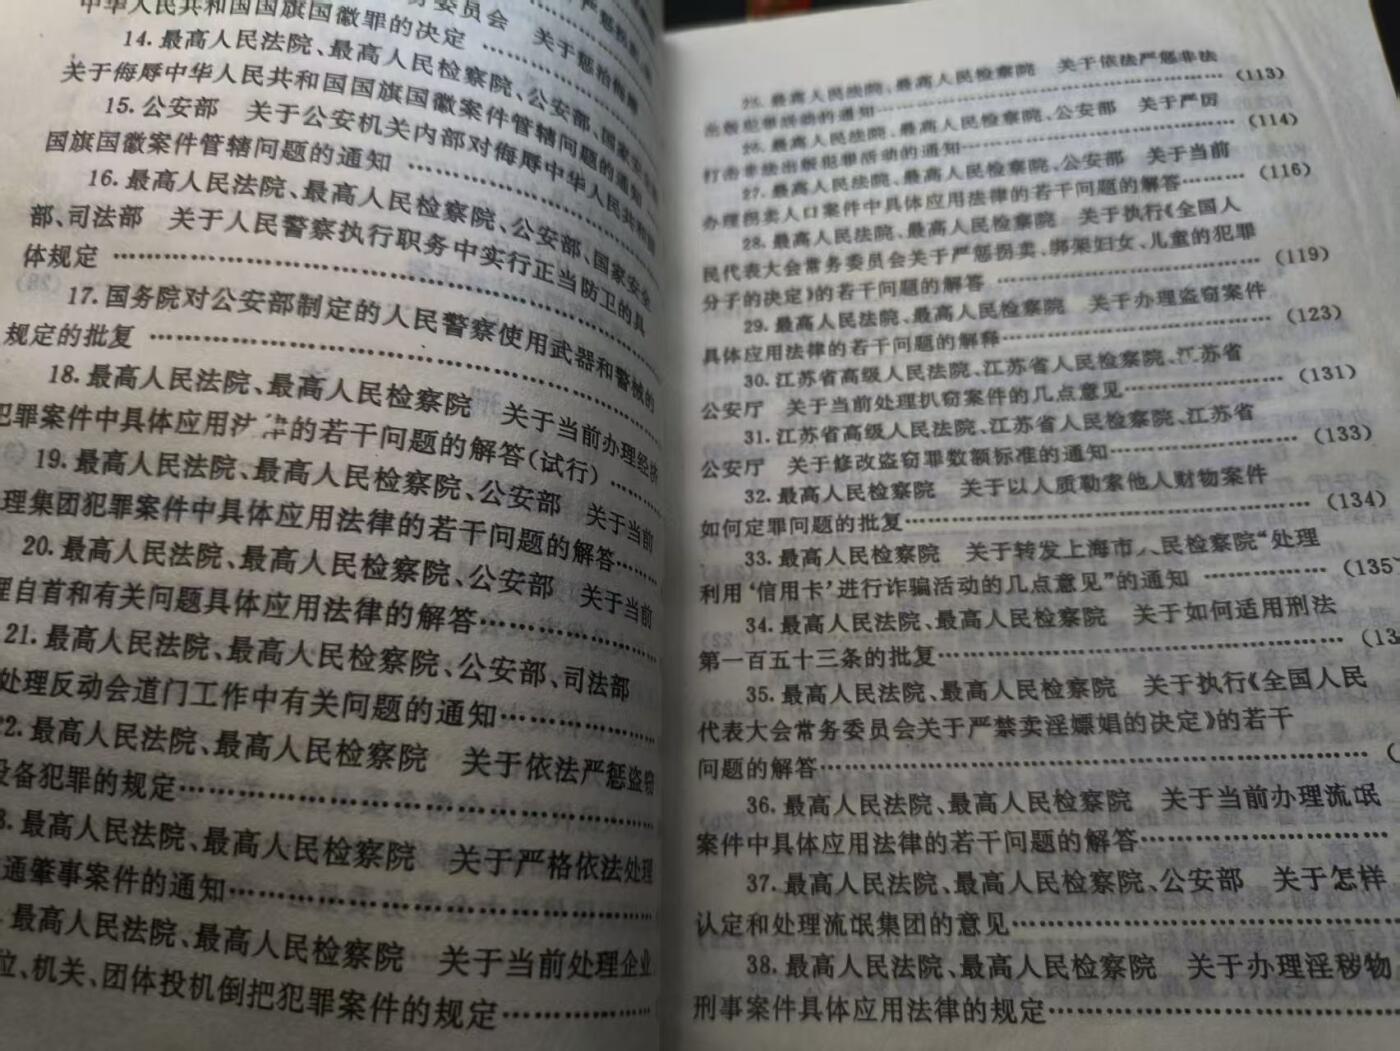 中华人民共和国国旗国徽罪的决定 ………
14. 最高人民法院、最高人民检察院、公安部、国家安全
关于侮辱中华人民共和国国旗国徽案件管辖问题的通知
15. 公安部　关于公安机关内部对侮辱中华人民共和国
国旗国徽案件管辖问题的通知 ………
16. 最高人民法院、最高人民检察院、公安部、国家安全
部、司法部　关于人民警察执行职务中实行正当防卫的具
体规定 ………
17. 国务院对公安部制定的人民警察使用武器和警械的
规定的批复 ………
18. 最高人民法院、最高人民检察院　关于当前办理经济
犯罪案件中具体应用法律的若干问题的解答(试行) ………
19. 最高人民法院、最高人民检察院、公安部　关于当前
理集团犯罪案件中具体应用法律的若干问题的解答………
20. 最高人民法院、最高人民检察院、公安部　关于当前
理自首和有关问题具体应用法律的解答………
21. 最高人民法院、最高人民检察院、公安部、司法部
处理反动会道门工作中有关问题的通知………
22. 最高人民法院、最高人民检察院　关于依法严惩盗窃
设备犯罪的规定………
3. 最高人民法院、最高人民检察院　关于严格依法处理
通肇事案件的通知………
最高人民法院、最高人民检察院　关于当前处理企业
位、机关、团体投机倒把犯罪案件的规定………
25. 最高人民法院、最高人民检察院　关于依法严惩非法
出版犯罪活动的通知………(113)
26. 最高人民法院、最高人民检察院、公安部　关于严厉
打击非法出版犯罪活动的通知………(114)
27. 最高人民法院、最高人民检察院、公安部　关于当前
办理拐卖人口案件中具体应用法律的若干问题的解答………(116)
28. 最高人民法院、最高人民检察院　关于执行《全国人
民代表大会常务委员会关于严惩拐卖、绑架妇女、儿童的犯罪
分子的决定》的若干问题的解答 ………(119)
29. 最高人民法院、最高人民检察院　关于办理盗窃案件
具体应用法律的若干问题的解释………(123)
30. 江苏省高级人民法院、江苏省人民检察院、江苏省
公安厅　关于当前处理扒窃案件的几点意见………(131)
31. 江苏省高级人民法院、江苏省人民检察院、江苏省
公安厅　关于修改盗窃罪数额标准的通知………(133)
32. 最高人民检察院　关于以人质勒索他人财物案件
如何定罪问题的批复………(134)
33. 最高人民检察院　关于转发上海市人民检察院“处理
利用‘信用卡’进行诈骗活动的几点意见”的通知 ………(135)
34. 最高人民法院、最高人民检察院　关于如何适用刑法
第一百五十三条的批复………(13
35. 最高人民法院、最高人民检察院　关于执行《全国人民
代表大会常务委员会关于严禁卖淫嫖娼的决定》的若干
问题的解答………(
36. 最高人民法院、最高人民检察院　关于当前办理流氓
案件中具体应用法律的若干问题的解答………
37. 最高人民法院、最高人民检察院、公安部　关于怎样
认定和处理流氓集团的意见………
38. 最高人民法院、最高人民检察院　关于办理淫秽物
刑事案件具体应用法律的规定………